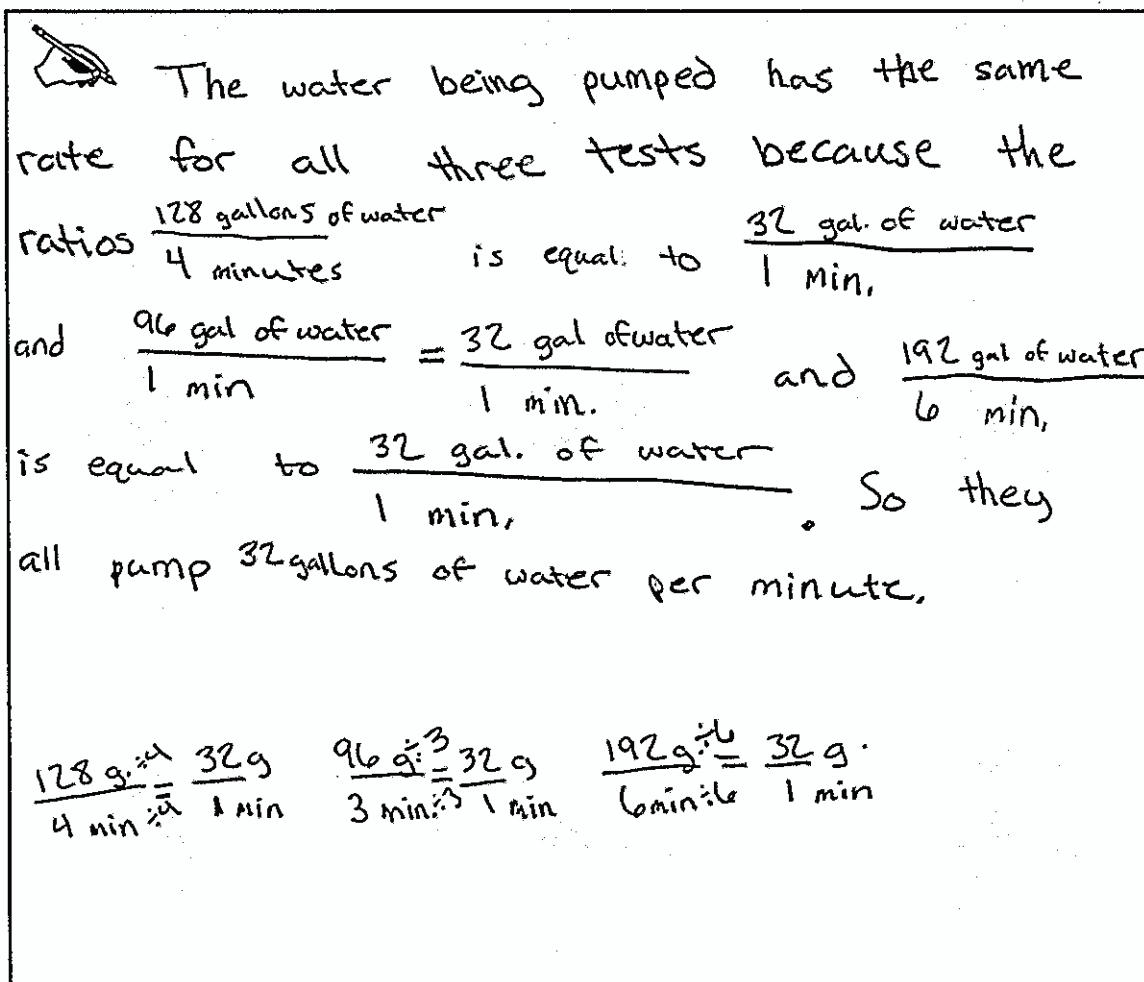 The water being pumped has the same
rate for all three tests because the
ratios 128 gallons of water / 4 minutes is equal to 32 gal. of water / 1 min.
and 96 gal of water / 1 min = 32 gal of water / 1 min. and 192 gal of water / 6 min.
is equal to 32 gal. of water / 1 min. . So they
all pump 32 gallons of water per minute.
128 g. ÷4 / 4 min ÷4 = 32 g / 1 min 96 g ÷3 / 3 min ÷3 = 32 g / 1 min 192 g ÷6 / 6 min ÷6 = 32 g. / 1 min